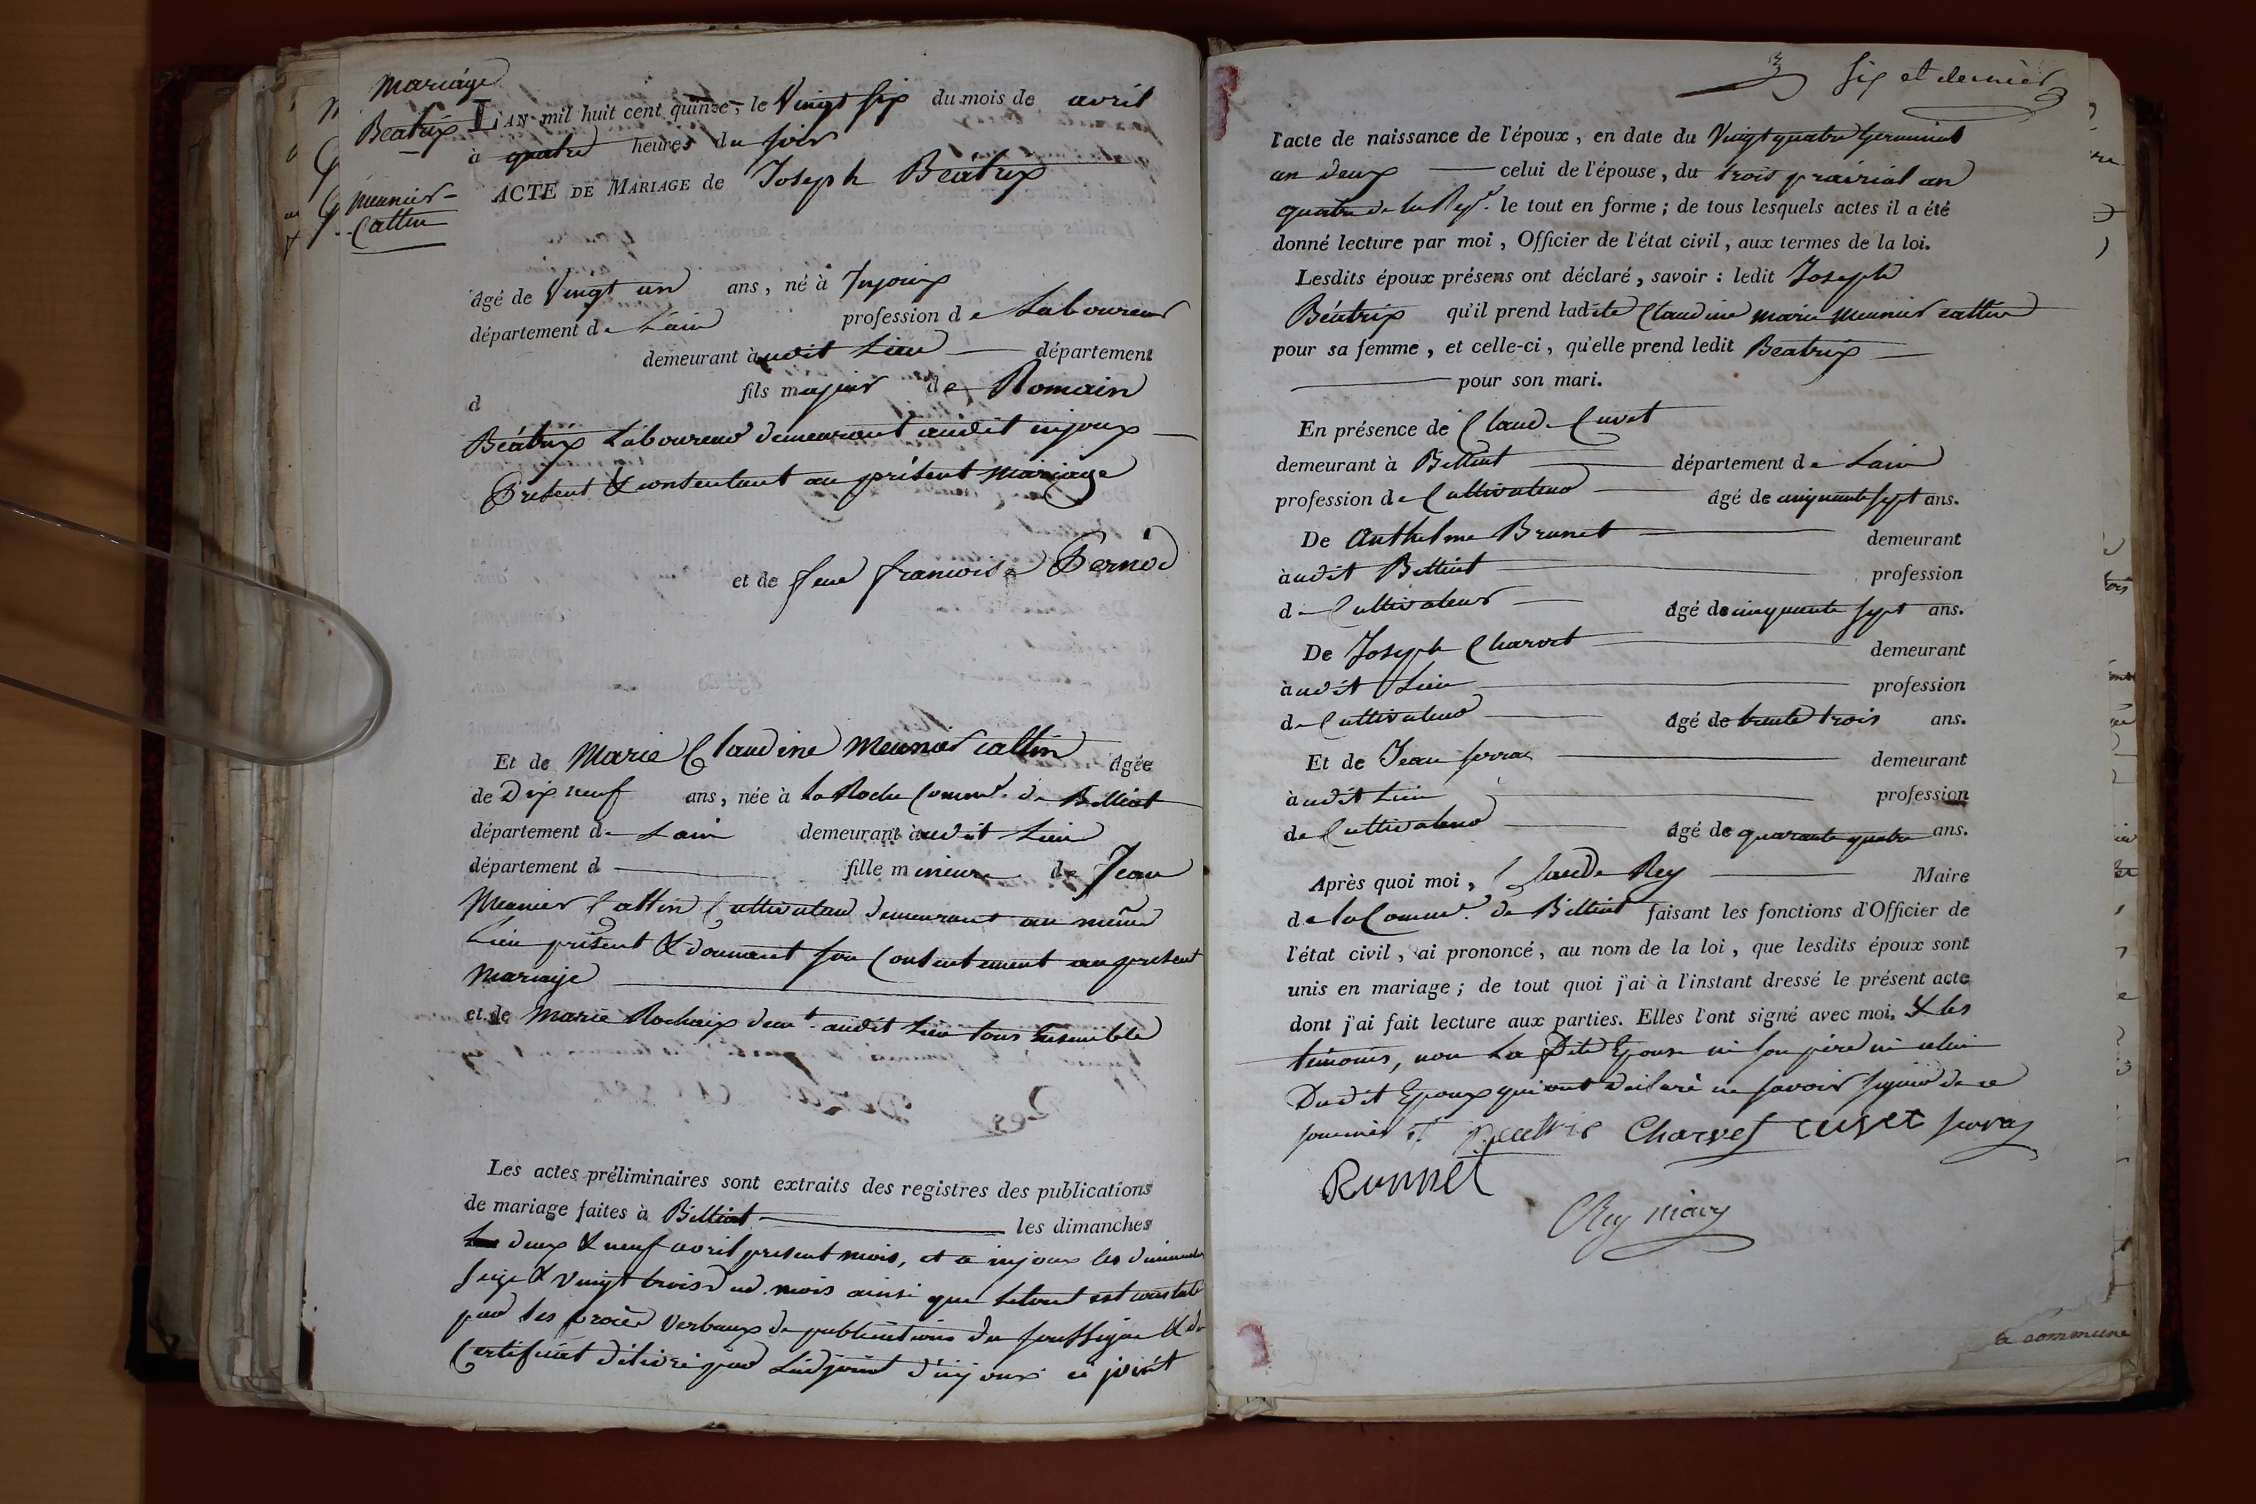 mariage
Beatrix
meunier-
Cattin
L'AN mil huit cent quinze, le Vingt six du mois de avril
à quatre heures du soir
ACTE DE MARIAGE de Joseph Béatrix
âgé de Vingt un ans, né à Injoux
département de Lain profession de Laboureur
demeurant audit Lieu département
d fils majeur de Romain
Béatrix Laboureur demeurant audit injoux
Présent & consentant au présent mariage
et de feue francoise Pernod
Et de Marie Claudine Meunier cattin âgée
de Dix neuf ans, née à la Roche Commne. de Billiat
département de Lain demeurant audit Lieu
département d fille mineure de Jean
Meunier Cattin Cultivateur demeurant au même
Lieu présent & donnant son Consentement au présent
Mariage
et de Marie Rochaix demt. audit Lieu tous Ensemble
Les actes préliminaires sont extraits des registres des publications
de mariage faites à Billiat les dimanches
deux & neuf avril présent mois, et a injoux les dimanches
seize & vingt trois dud. mois ainsi que letout est constaté
par les procès Verbaux de publications du soussigné & du
Certificat délivré par Ladjoint d'injoux ci joint
six et dernier
l'acte de naissance de l'époux, en date du Vingt quatre Germinal
an deux celui de l'épouse, du trois prairial an
quatre de la Rep. le tout en forme; de tous lesquels actes il a été
donné lecture par moi, Officier de l'état civil, aux termes de la loi.
Lesdits époux présens ont déclaré, savoir: ledit Joseph
Béatrix qu'il prend ladite Claudine marie meunier cattin
pour sa femme, et celle-ci, qu'elle prend ledit Beatrix
pour son mari.
En présence de Claude Cuvet
demeurant à Billiat département de Lain
profession de Cultivateur âgé de cinquante sept ans.
De Anthelme Brunet demeurant
audit Billiat profession
de Cultivateur âgé de cinquante sept ans.
De Joseph Charvet demeurant
audit Lieu profession
de Cultivateur âgé de trente trois ans.
Et de Jean demeurant
audit Lieu profession
de Cultivateur âgé de quarante quatre ans.
Après quoi moi, Claude Rey Maire
de la Commne. de Billiat faisant les fonctions d'Officier de
l'état civil, ai prononcé, au nom de la loi, que lesdits époux sont
unis en mariage; de tout quoi j'ai à l'instant dressé le présent acte
dont j'ai fait lecture aux parties. Elles l'ont signé avec moi. & les
témoins, non La Dite Epouse ni son père ni celui
Dudit Epoux qui ont déclaré ne savoir signer de ce
Charvet cuvet
Rey maire
a commune